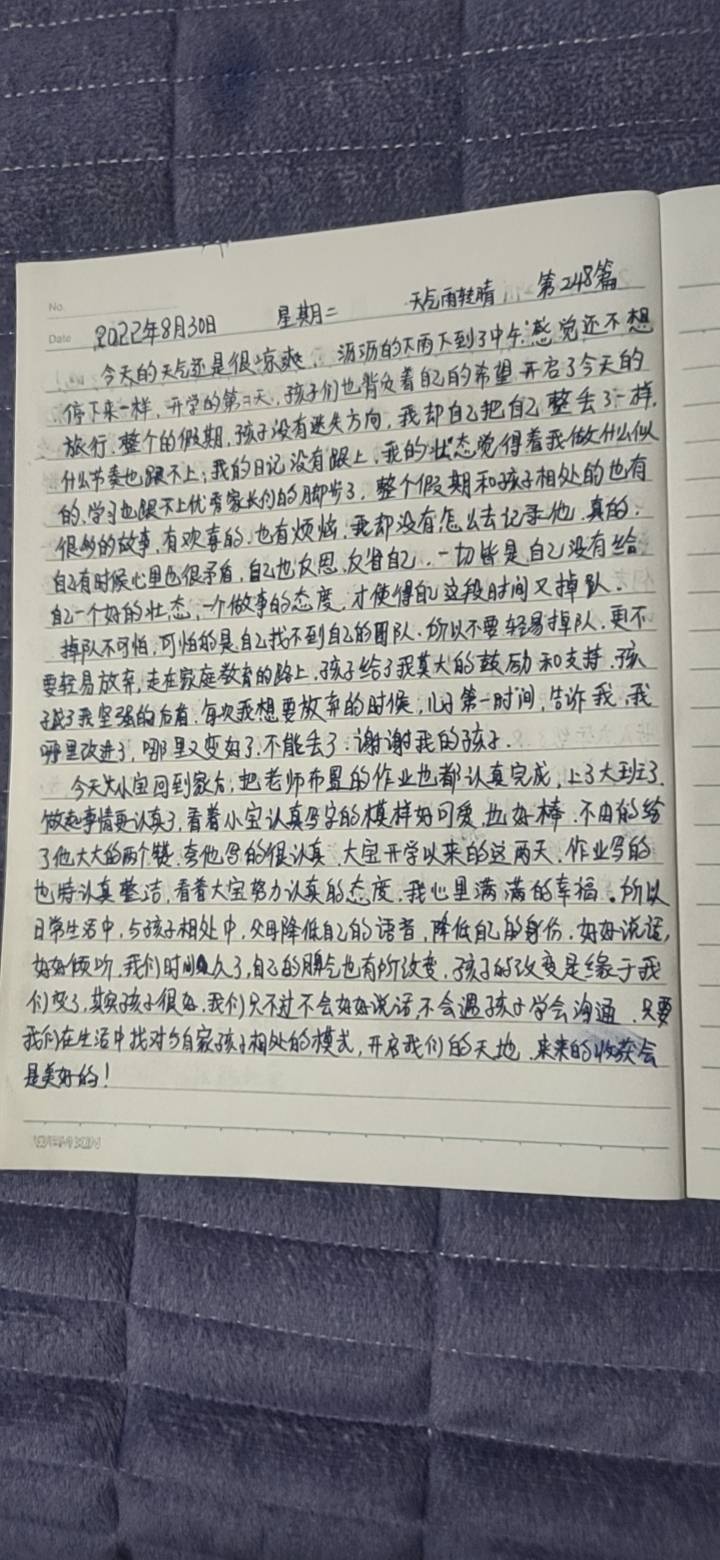 No.
Date 2022年8月30日 星期二 天气雨转晴 第248篇
今天的天气还是很凉爽、沥沥的下雨下到了中午,感觉还不想
停下来一样,开学的第二天,孩子们也背负着自己的希望开启了今天的
旅行.整个的假期,孩子没有迷失方向,我却自己把自己整丢了一样,
什么节奏也跟不上;我的日记没有跟上,我的状态觉得着我做什么似
的,学习也跟不上优秀家长们的脚步了,整个假期和孩子相处的也有
很多的故事,有欢喜的,也有烦恼,我却没有怎么去记录他,真的,
自己有时候心里也很矛盾,自己也反思,反省自己,一切皆是自己没有给
自己一个好的状态,一个做事的态度,才使得自己这段时间又掉队.
掉队不可怕,可怕的是自己找不到自己的团队.所以不要轻易掉队.更不
要轻易放弃,走在家庭教育的路上,孩子给了我莫大的鼓励和支持,孩
子成了我坚强的后盾,每次我想要放弃的时候,儿子第一时间,告诉我,我
哪里改进了,哪里又变好了.不能丢了.谢谢我的孩子.
今天大小宝回到家后,把老师布置的作业也都认真完成,上了大班了,
做起事情更认真了,看着小宝认真写字的模样好可爱,也好棒,不由的给
了他大大的两个赞,夸他写的很认真,大宝开学以来的这两天,作业写的
也特认真整洁,看着大宝努力认真的态度,我心里满满的幸福。所以
日常生活中,与孩子相处中,父母降低自己的语音,降低自己的身份,好好说话,
好好倾听,我们时间久了,自己的脾气也有所改变,孩子的改变是缘于我
们变了,其实孩子很好,我们只不过不会好好说话,不会遇孩子学会沟通,只要
我们在生活中找对与自家孩子相处的模式,开启我们的天地,未来的收获会
是美好的!